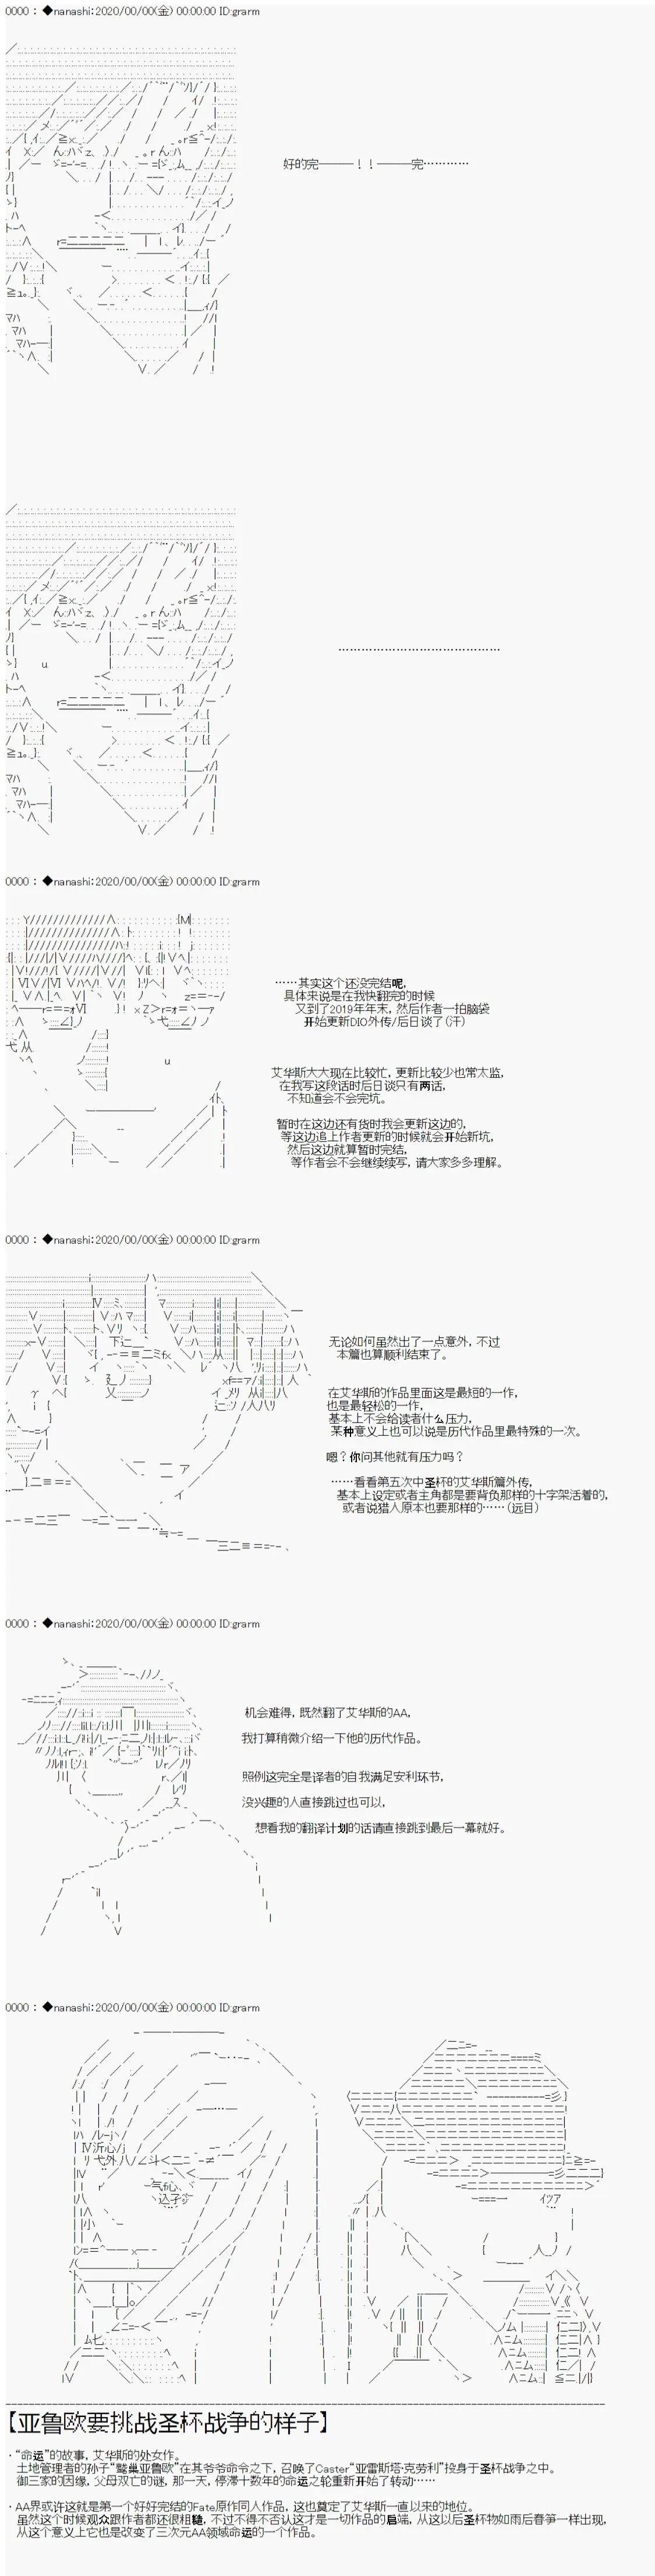 0000 : ◆nanashi:2020/00/00(金) 00:00:00 ID:grarm
好的完───！！───完…………
……………………………………
0000 : ◆nanashi:2020/00/00(金) 00:00:00 ID:grarm
……其实这个还没完结呢，
具体来说是在我快翻完的时候
又到了2019年年末，然后作者一拍脑袋
开始更新DIO外传/后日谈了(汗)
艾华斯大大现在比较忙，更新比较少也常太监，
在我写这段话时后日谈只有两话，
不知道会不会完坑。
暂时在这边还有货时我会更新这边的，
等这边追上作者更新的时候就会开始新坑，
然后这边就算暂时完结，
等作者会不会继续续写，请大家多多理解。
0000 : ◆nanashi:2020/00/00(金) 00:00:00 ID:grarm
无论如何虽然出了一点意外，不过
本篇也算顺利结束了。
在艾华斯的作品里面这是最短的一作，
也是最轻松的一作，
基本上不会给读者什么压力，
某种意义上也可以说是历代作品里最特殊的一次。
嗯？你问其他就有压力吗？
……看看第五次中圣杯的艾华斯篇外传，
基本上设定或者主角都是要背负那样的十字架活着的，
或者说猎人原本也要那样的……(远目)
0000 : ◆nanashi:2020/00/00(金) 00:00:00 ID:grarm
机会难得，既然翻了艾华斯的AA，
我打算稍微介绍一下他的历代作品。
照例这完全是译者的自我满足安利环节，
没兴趣的人直接跳过也可以，
想看我的翻译计划的话请直接跳到最后一幕就好。
0000 : ◆nanashi:2020/00/00(金) 00:00:00 ID:grarm
【亚鲁欧要挑战圣杯战争的样子】
・“命运”的故事，艾华斯的处女作。
土地管理者的孙子“鹫巢亚鲁欧”在其爷爷命令之下，召唤了Caster“亚雷斯塔·克劳利”投身于圣杯战争之中。
御三家的因缘，父母双亡的谜，那一天，停滞十数年的命运之轮重新开始了转动……
・AA界或许这就是第一个好好完结的Fate原作同人作品，这也奠定了艾华斯一直以来的地位。
虽然这个时候观众跟作者都还很粗糙，不过不得不否认这才是一切作品的启端，从这以后圣杯物如雨后春笋一样出现，
从这个意义上它也是改变了三次元AA领域命运的一个作品。